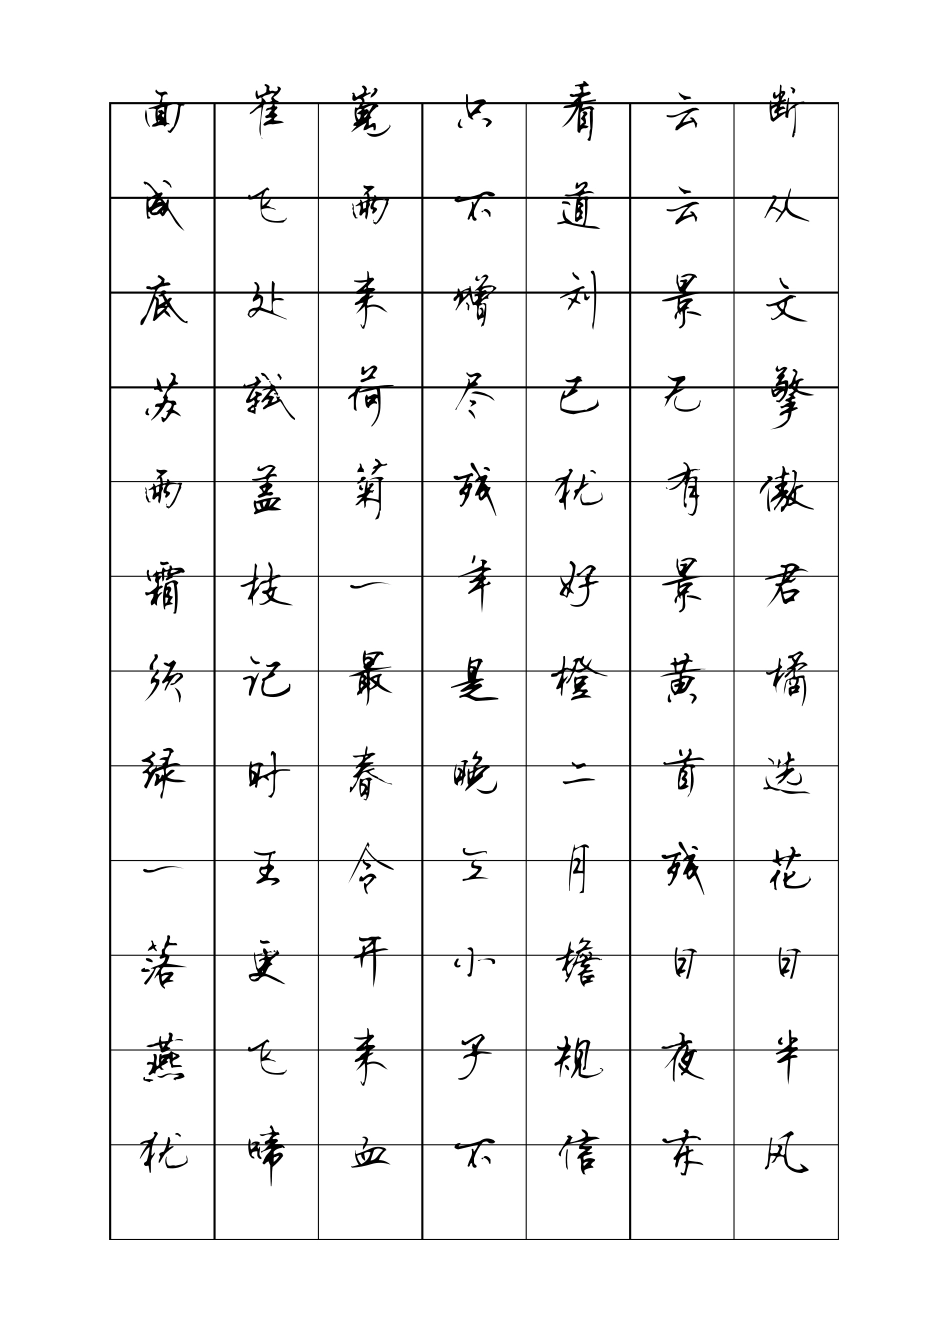 面崔嵬只看云断
成飞雨不道云从
底处来赠刘景文
苏轼荷尽已无擎
雨盖菊残犹有傲
霜枝一年好景君
须记最是橙黄橘
绿时春晚二首选
一王令三月残花
落更开小檐日日
燕飞来子规夜半
犹啼血不信东风